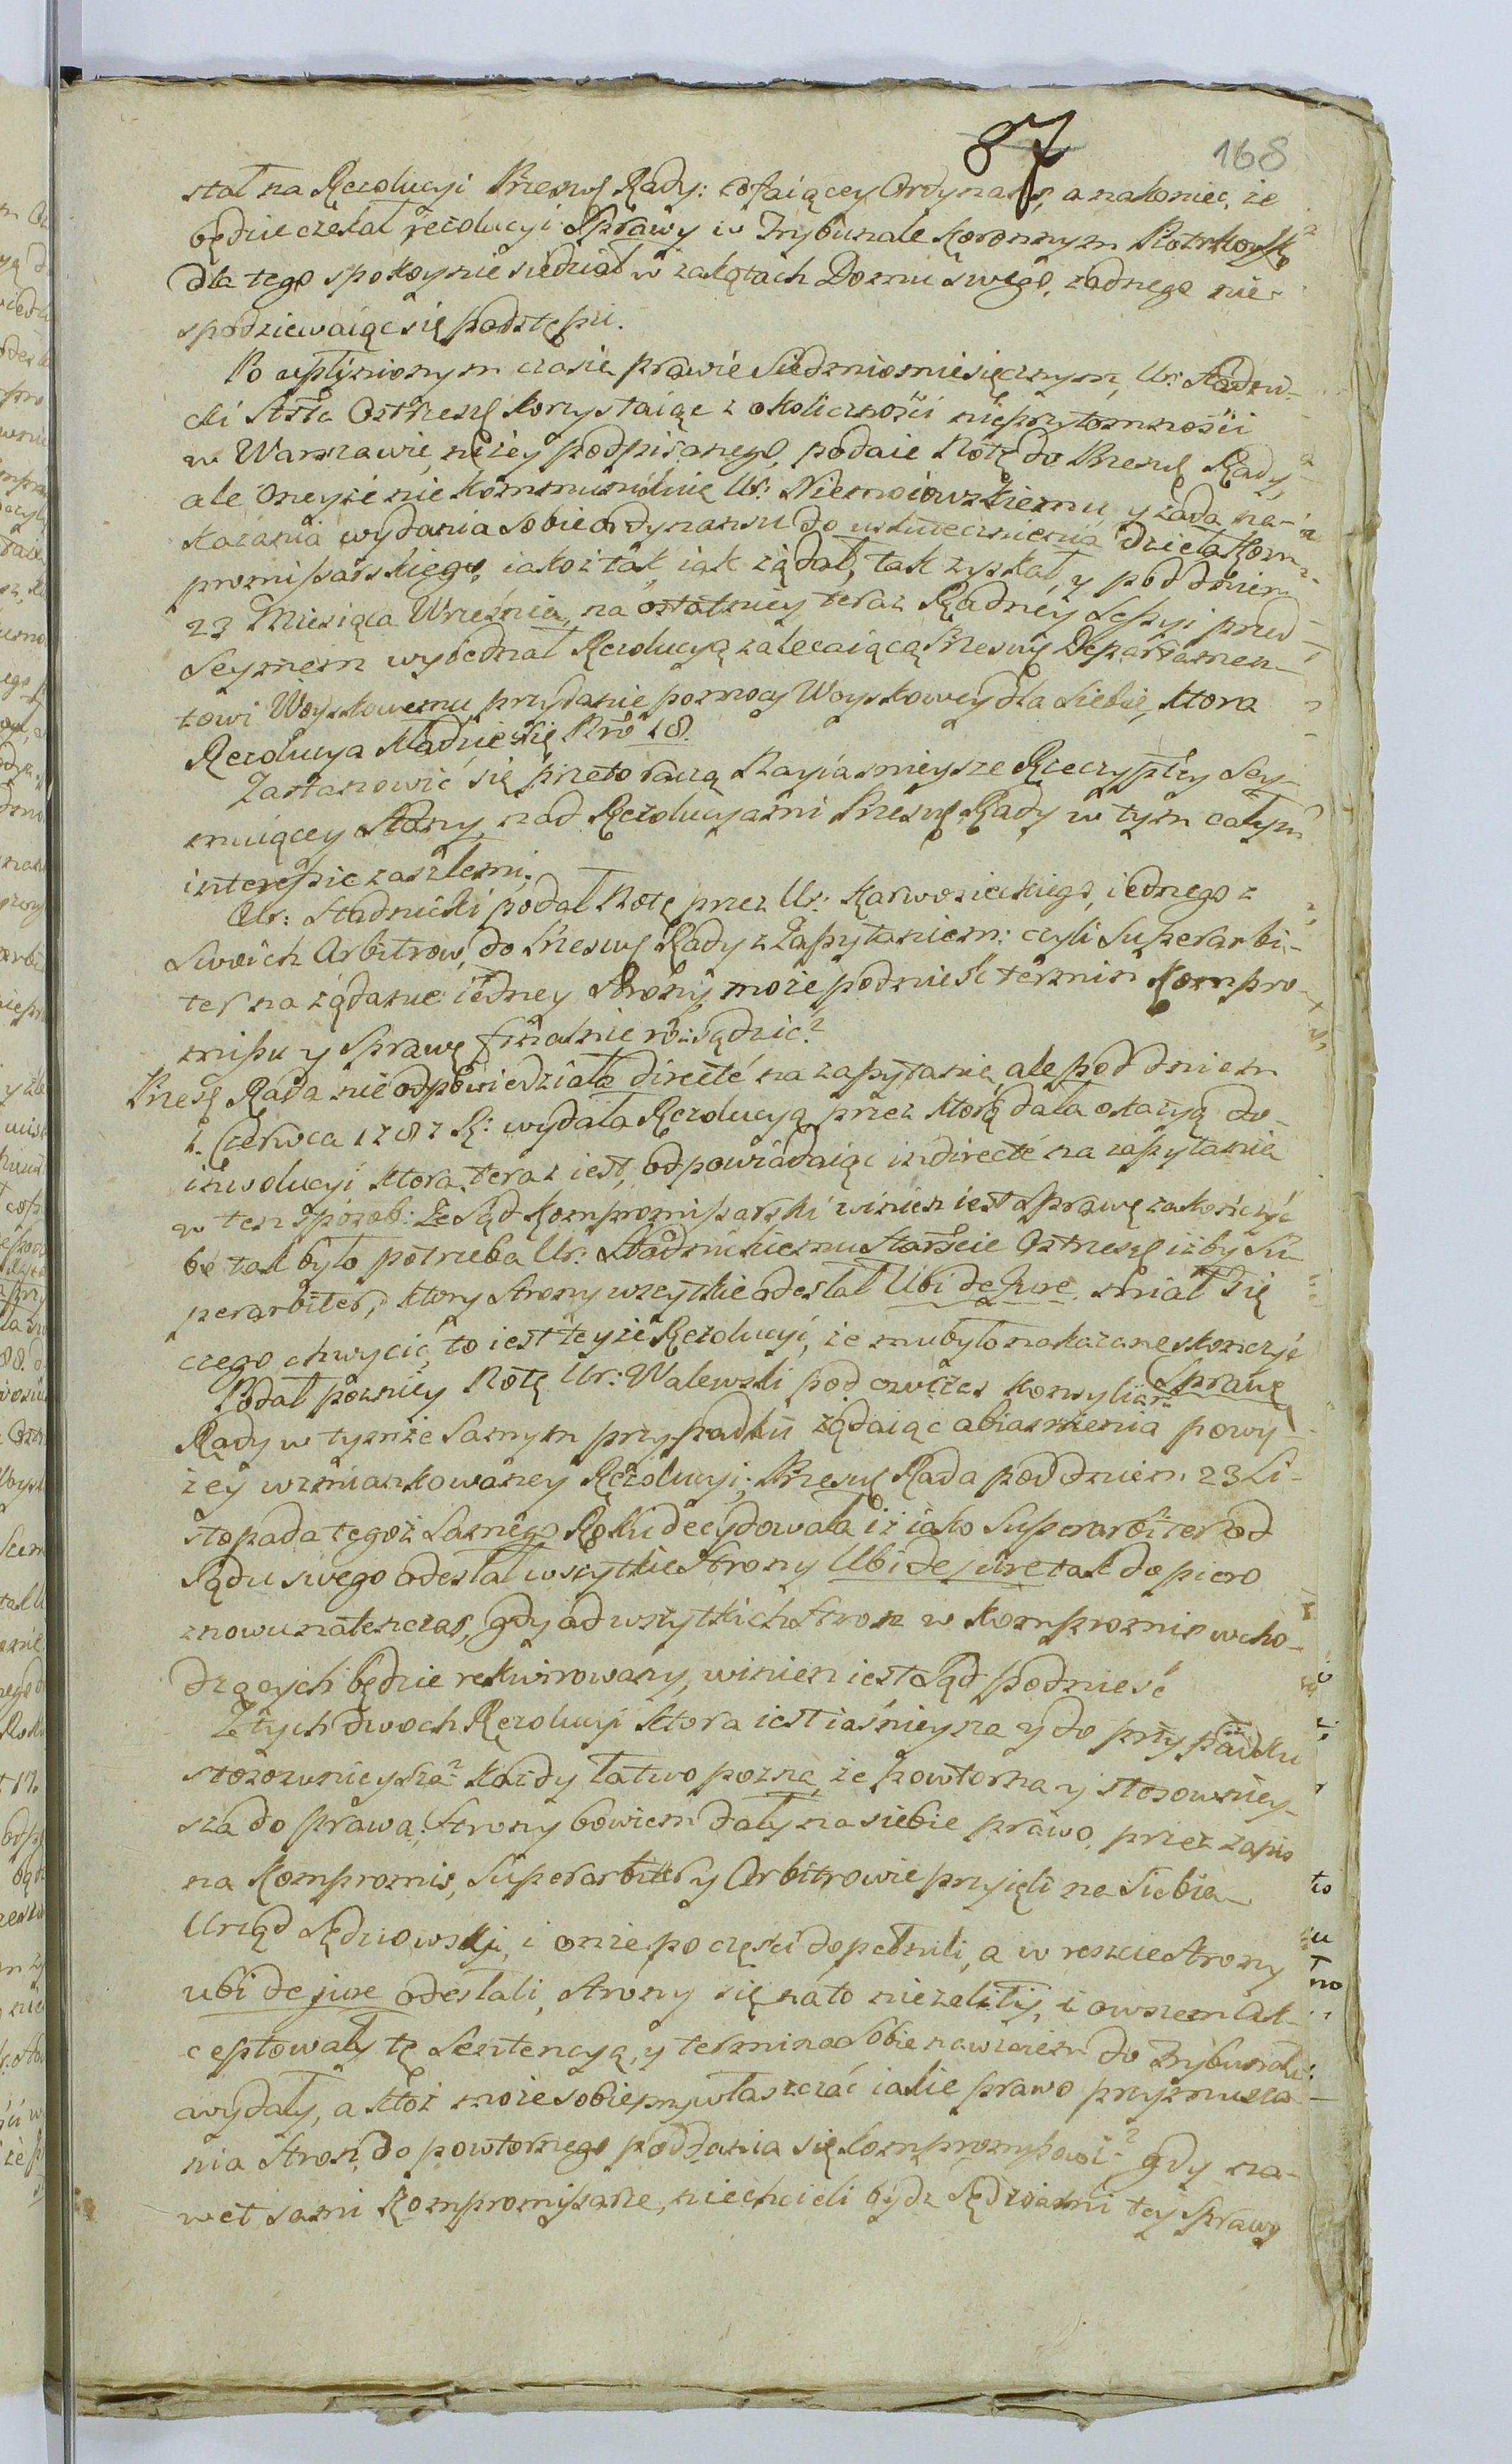 87 168
stał na Rezolucyi Przeswę Rady: cofaiącey Ordynans, a nakoniec, że
będzie czekał rezolucyi Sprawy w Trybunale Koronnym Piotrkowsk
dla tego spokoynie siedział w zakątach Domu swego, żadnego nie-
spodziewaiąc się podstępu.
Po upłynionym czasie prawie Siedmiomiesięcznym, Ur: Stadni-
cki Stta Ostrzesz korzystaiąc z okoliczności nieprzytomności
w Warszawie, niżey podpisanego, podaie Notę do Przeswę Rady,
ale Oneyże nie kommunikuie Ur: Niemoiowskiemu, y żąda na-
kazania wydania sobie ordynansu do uskutecznienia dzieła Kom-
promissarskiego, iakoż tak, iak żądał, tak zyskał, y pod dniem
23 Miesiąca Września, na ostatniey teraz Radney Sessyi przed
Seymem wyiednał Rezolucyą zalecaiącą Przeswę Departamen-
towi Woyskowemu przydanie pomocy Woyskowey dla Siebie, ktora
Rezolucya kładzie się Nro 18.
Zastanowić się przeto raczą Nayiasnieysze Rzeczyptey Sey-
muiącey Stany, nad Rezolucyami Przeswę Rady w tym całym
interessie zaszłemi.
Ur: Stadnicki podał Notę przez Ur: Karwosieckiego, iednego z
Swoich Arbitrow, do Przeswę Rady z Zapytaniem: czyli Superarbi-
ter na żądanie iedney Strony może podnieść termin Kompro-
missu y Sprawę finalnie rozsądzić?
Przesw Rada nie odpowiedziała directé na zapytanie, ale pod dniem
1. Czerwca 1787 R: wydała Rezolucyą przez ktorą dała okazyą do-
inwolucyi ktora teraz iest, odpowiadaiąc indirecté na zapytanie
w ten sposob: Że Sąd Kompromissarski winien iest Sprawę zakończyć
bo tak było potrzeba Ur: Stadnickiemu Staroście Ostrzesz iżby Su-
perarbiter, ktory strony wszytkie odesłał Ubi de Jure, miał się
czego chwycić, to iest teyże Rezolucyi, że mu było nakazane skonczyć
Sprawę
Podał pozniey Notę Ur: Walewski pod owczas Konsyliarz
Rady w tymże Samym przypadku żądaiąc obiasnienia powy-
żey wzmiankowaney Rezolucyi; Przeswę Rada pod dniem 23 Li-
stopada tegoż Samego Roku decydowała iż iako Superarbiter od
Sądu swego odesłał wszytkie Strony Ubi de jure tak dopiero
znowu natenczas, gdy od wszytkich Stron w Kompromis wcho-
dzących będzie rekwirowany, winien iest Sąd podnieść
Z tych dwoch Rezolucyi ktora iest iaśnieysza y do przypadku
stosownieysza? każdy łatwo pozna, że powtorna y stosowniey-
sza do prawa: Strony bowiem dały na siebie prawo, przez zapis
na Kompromis, Superarbiter y Arbitrowie przyieli na Siebie
Urząd Sędziowski, i onże po części dopełnili, a w reszcie Strony
ubi de jure odesłali, strony się na to nieżaliły, i owszem Ak-
ceptowały tę Sentencyą, y termina Sobie nawzaiem do Trybunału
wydały, a ktoż może sobie przywłaszczać iakie prawo przymusza-
nia Stron do powtornego poddania się kompromissowi? gdy na-
wet sami Kompromissarze, niechcieli bydz Sędziami tey Sprawy